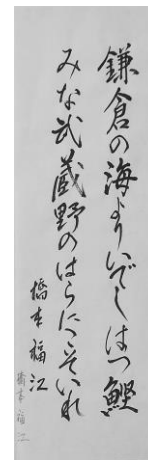 鎌倉の海よりいでしはつ鰹
みな武蔵野のはらにこそいれ
橋本福江
橋本福江